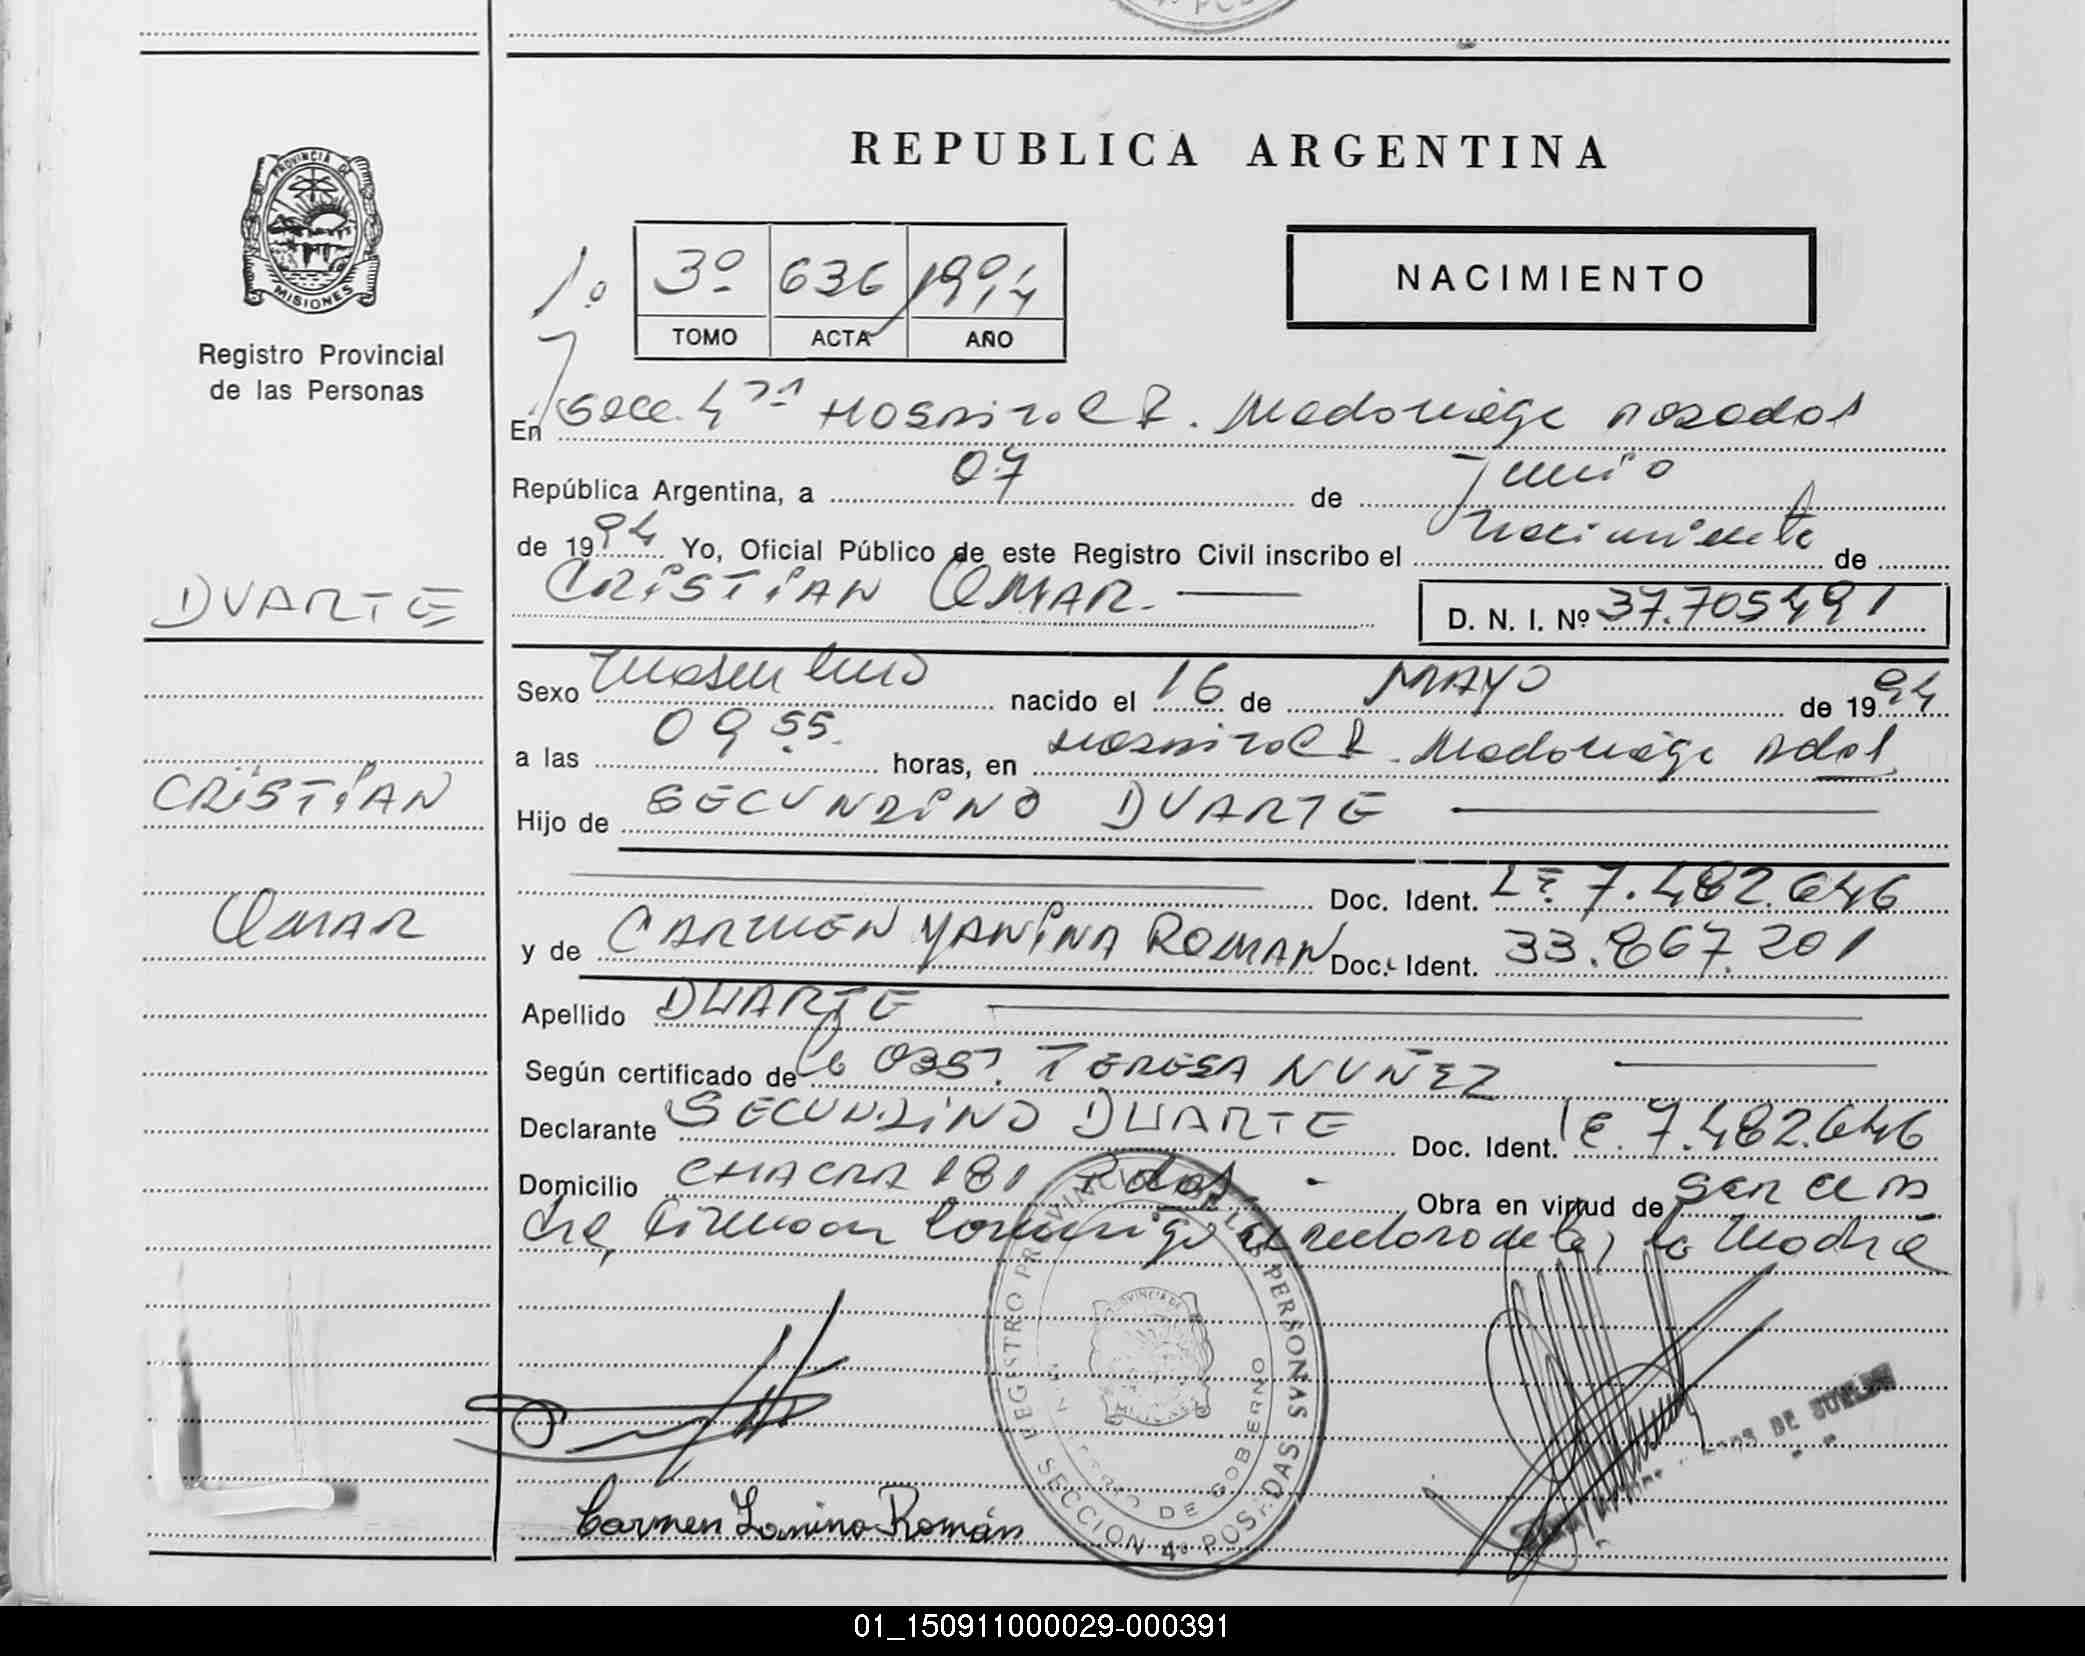 REPUBLICA ARGENTINA
PROVINCIA DE
MISIONES
Registro Provincial
de las Personas
1º
3º 636 1994
TOMO ACTA AÑO
NACIMIENTO
En Secc. 4ta Hospital R. Madariaga Posadas
República Argentina, a 07 de Junio
de 1994 Yo, Oficial Público de este Registro Civil inscribo el Nacimiento de
CRISTIAN OMAR. D. N. I. Nº 37.705491
DUARTE
Sexo Masculino nacido el 16 de MAYO de 1994
a las 09 55. horas, en Hospital R. Madariaga Pdas
CRISTIAN
Hijo de SECUNDINO DUARTE
Doc. Ident. LE 7.482.646
OMAR
y de CARMEN YANINA ROMAN Doc. Ident. 33.867.201
Apellido DUARTE
Según certificado de la OBST. TERESA NUÑEZ
Declarante SECUNDINO DUARTE Doc. Ident. LE. 7.482.646
Domicilio CHACRA 181 Pdas. Obra en virtud de ser el P.
de, Firman conmigo el declarante y la Madre
REGISTRO PROVINCIAL DE LAS PERSONAS
DE GOBIERNO
SECCION 4ª POSADAS
Carmen Yanina Román
01_150911000029-000391